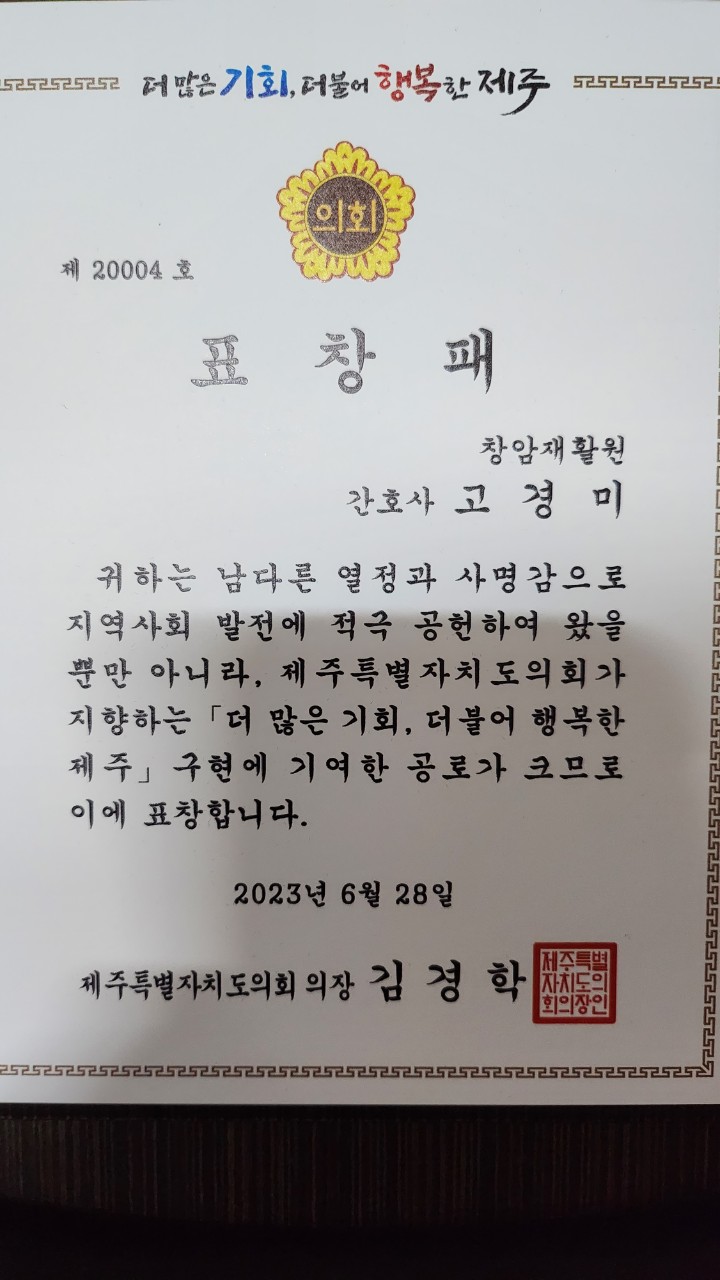 더 많은 기회, 더불어 행복한 제주
의회
제 20004 호
표 창 패
창암재활원
간호사 고 경 미
귀하는 남다른 열정과 사명감으로
지역사회 발전에 적극 공헌하여 왔을
뿐만 아니라, 제주특별자치도의회가
지향하는 「더 많은 기회, 더불어 행복한
제주」 구현에 기여한 공로가 크므로
이에 표창합니다.
2023년 6월 28일
제주특별자치도의회 의장 김 경 학
제주특별
자치도의
회의장인